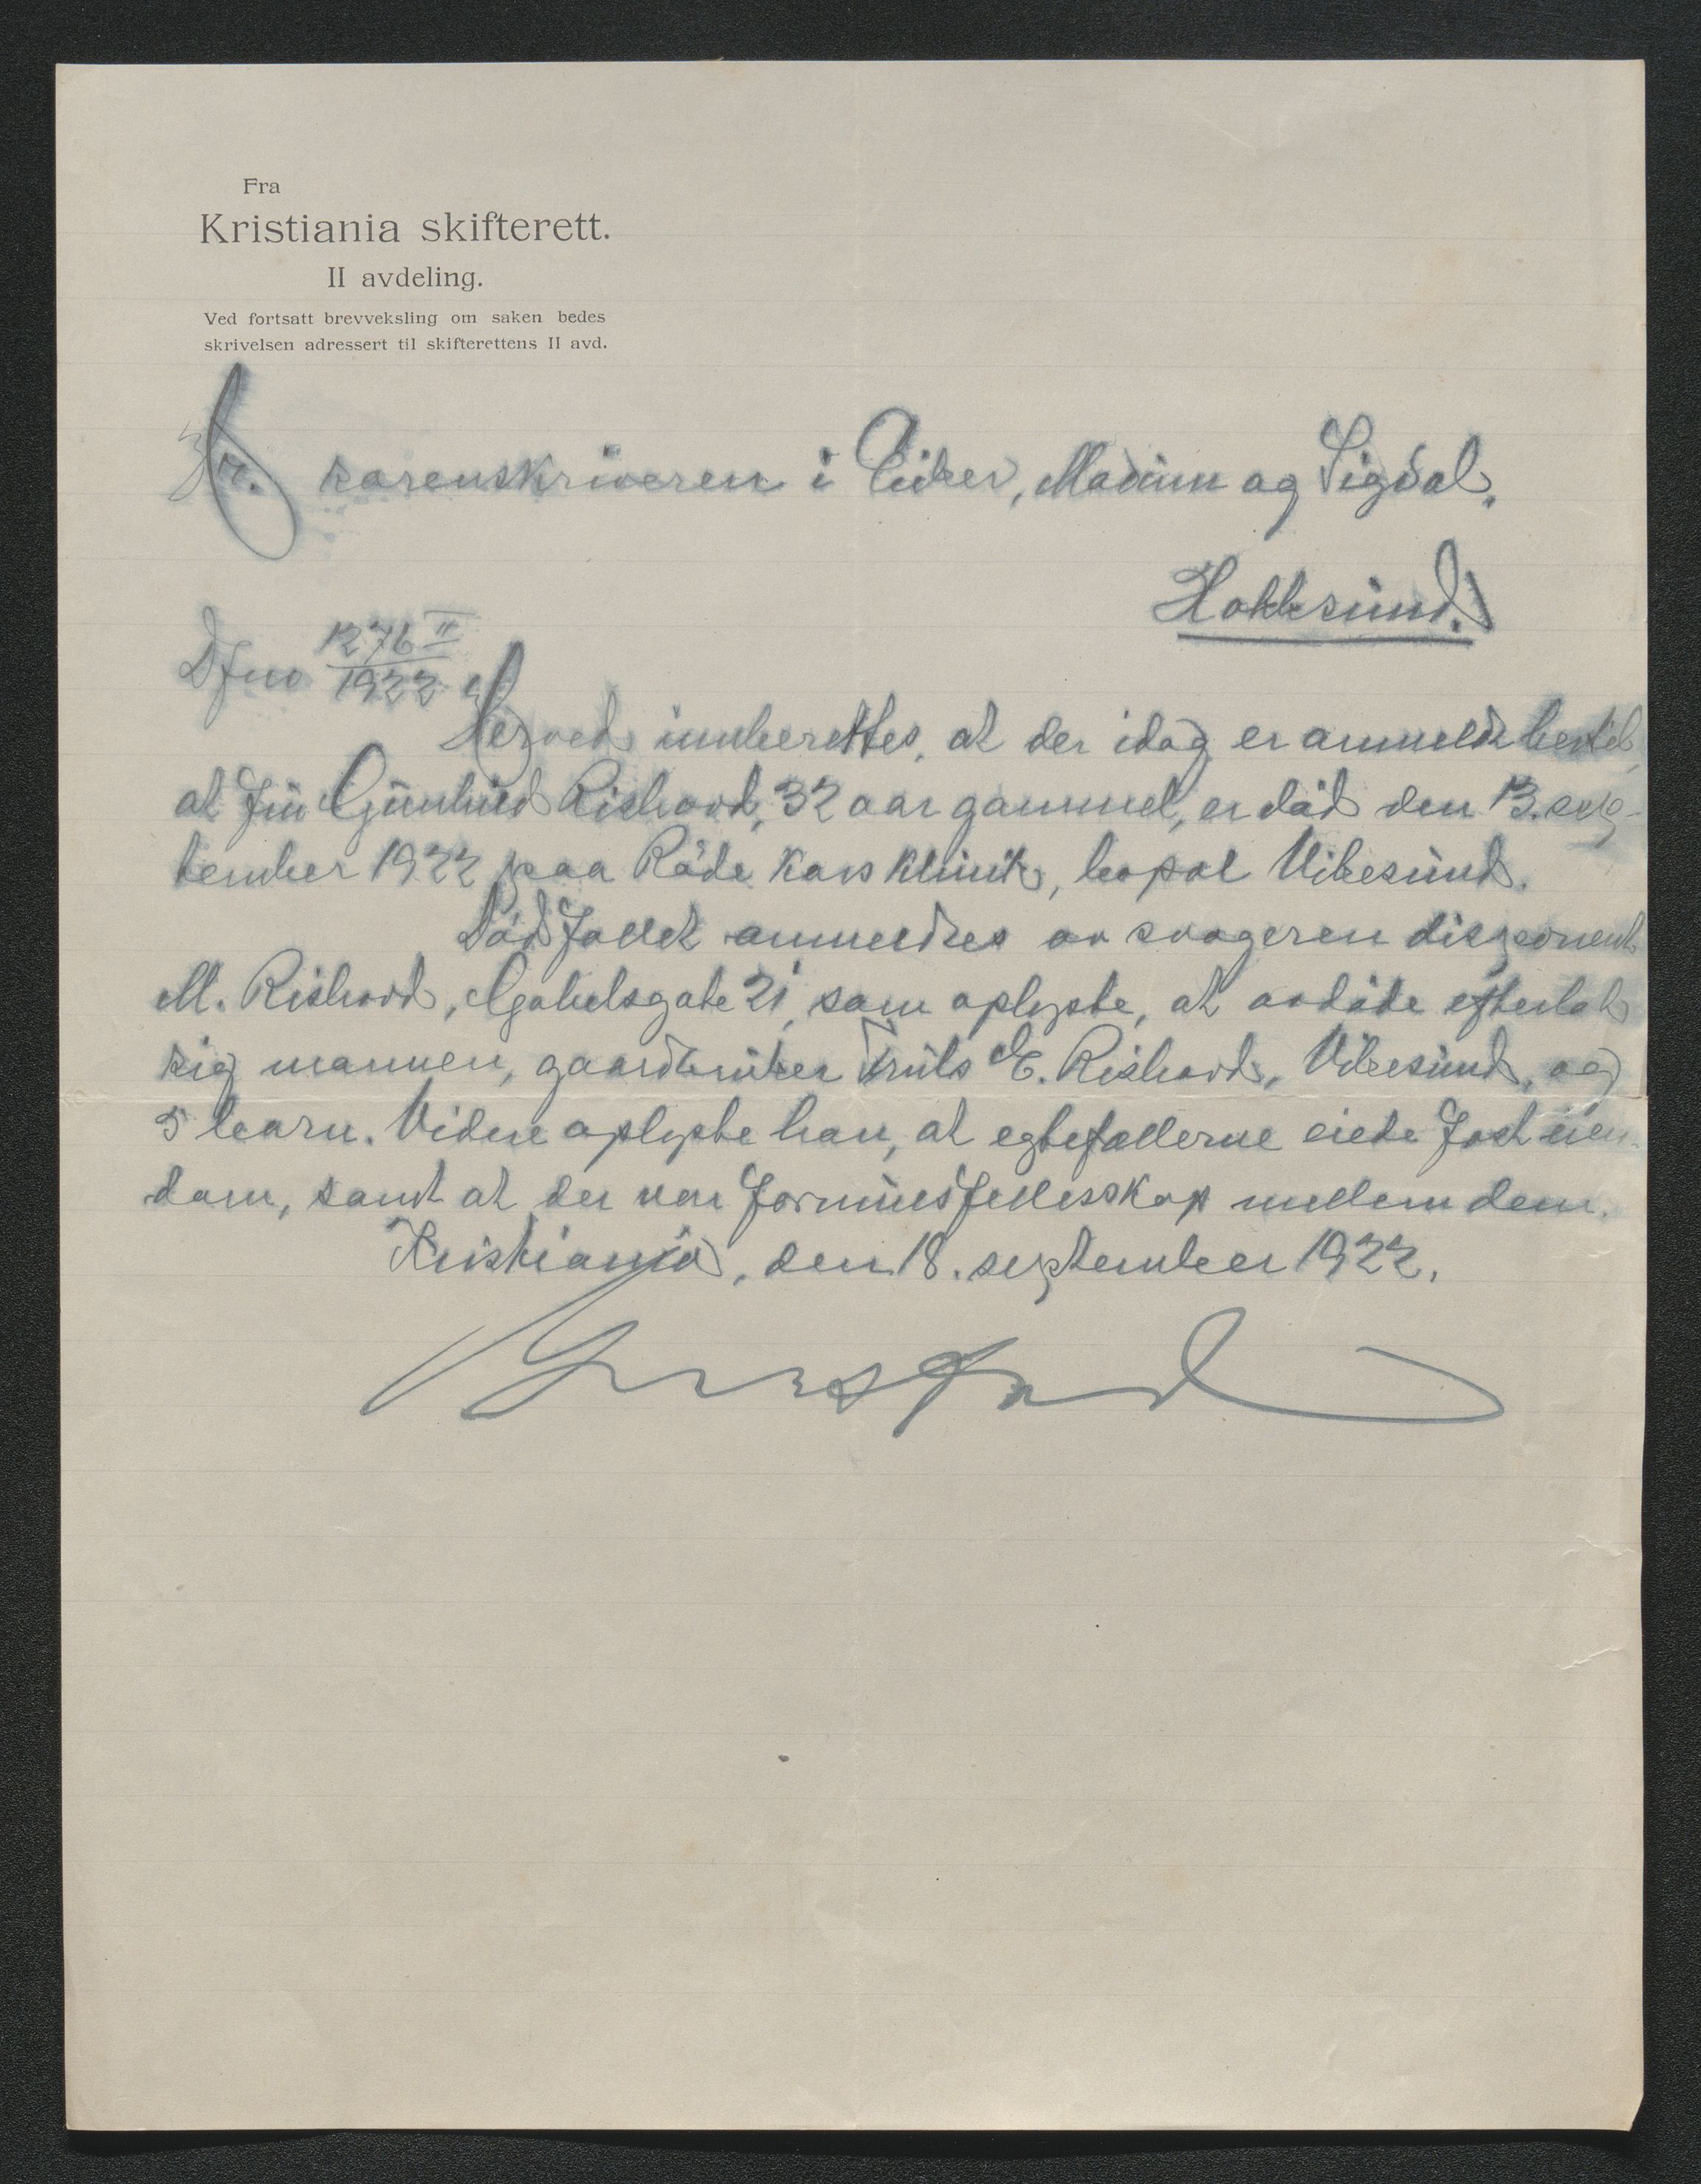 Fra
Kristiania skifterett.
II avdeling.
Ved fortsatt brevveksling om saken bedes
skrivelsen adressert til skifterettens II avd.
Hr. sorenskriveren i Eiker, Modum og Sigdal,
Hokksund.
Dfno 1276 II
1922
Herved innberettes, at der idag er anmeldt hertil,
at fru Gunhild Rishovd, 32 aar gammel, er død den 13. sep-
tember 1922 paa Røde Kors Klinik, bopæl Vikesund.
Dødsfallet anmeldtes av svogeren disponent
M. Rishovd, Gabelsgate 21, som oplyste, at avdøde efterlot
sig mannen, gaardbruker Truls E. Rishovd, Vikesund, og
5 barn. Videre oplyste han, at egtefællerne eiede fast eien-
dom, samt at der var formuesfellesskap mellem dem.
Kristiania, den 18. september 1922.